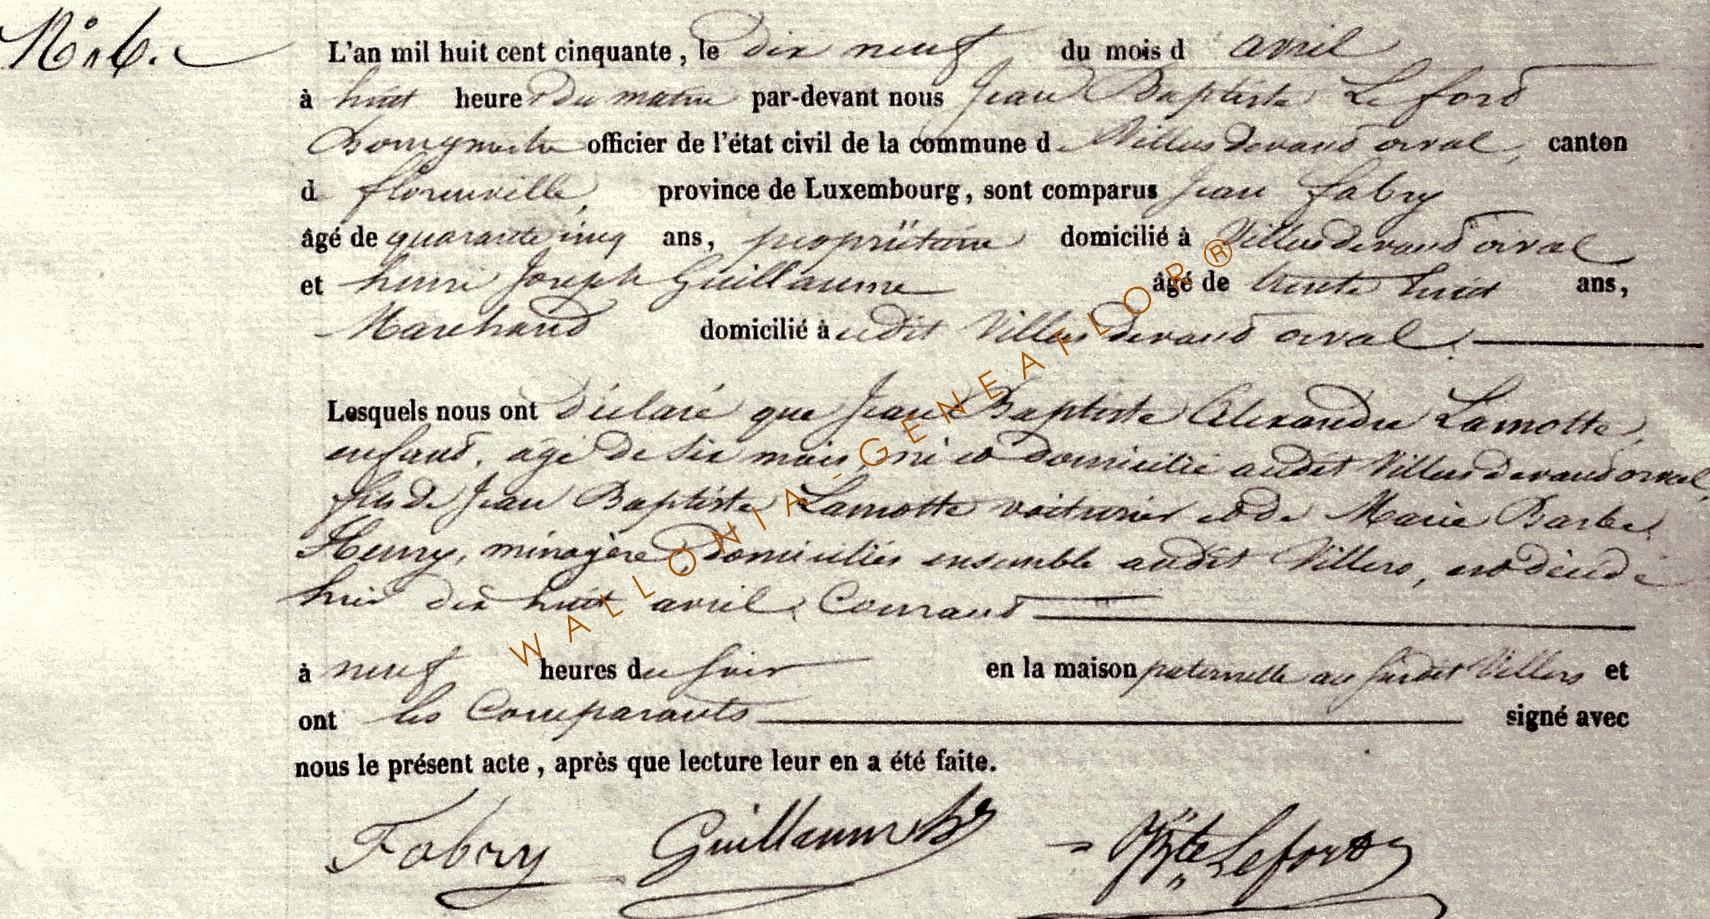 N° 6.
L'an mil huit cent cinquante, le dix neuf du mois d avril
à huit heures du matin par-devant nous Jean Baptiste Leford
Bourgmestre officier de l'état civil de la commune d Villers devand orval, canton
d florenville, province de Luxembourg, sont comparus Jean fabry
âgé de quarante cinq ans, propriétaire domicilié à Villers devand orval
et henri Joseph Guillaume âgé de trente huit ans,
Marchand domicilié à udit Villers devand orval.
Lesquels nous ont déclaré que Jean Baptiste Alexandre Lamotte,
enfand, âgé de six mois, né et domicilié audit Villers devand orval,
fils de Jean Baptiste Lamotte voiturier et de Marie Barbe
Henry, ménagère domiciliés ensemble audit Villers, est décédé
hier dix huit avril Courand
à neuf heures du soir en la maison paternelle au susdit Villers et
ont les Comparants signé avec
nous le présent acte, après que lecture leur en a été faite.
Fabry Guillaume Bte Lefort
WALLONIA-GENEAFLOR®